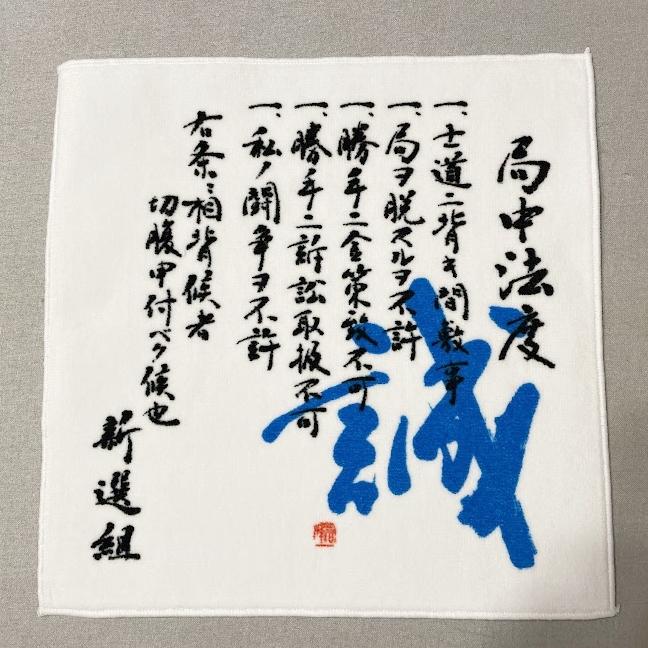 局中法度
一、士道ニ背キ間敷事
一、局ヲ脱スルヲ不許
一、勝手ニ金策致不可
一、勝手ニ訴訟取扱不可
一、私ノ闘争ヲ不許
右条々相背候者
切腹申付ベク候也
新選組
誠